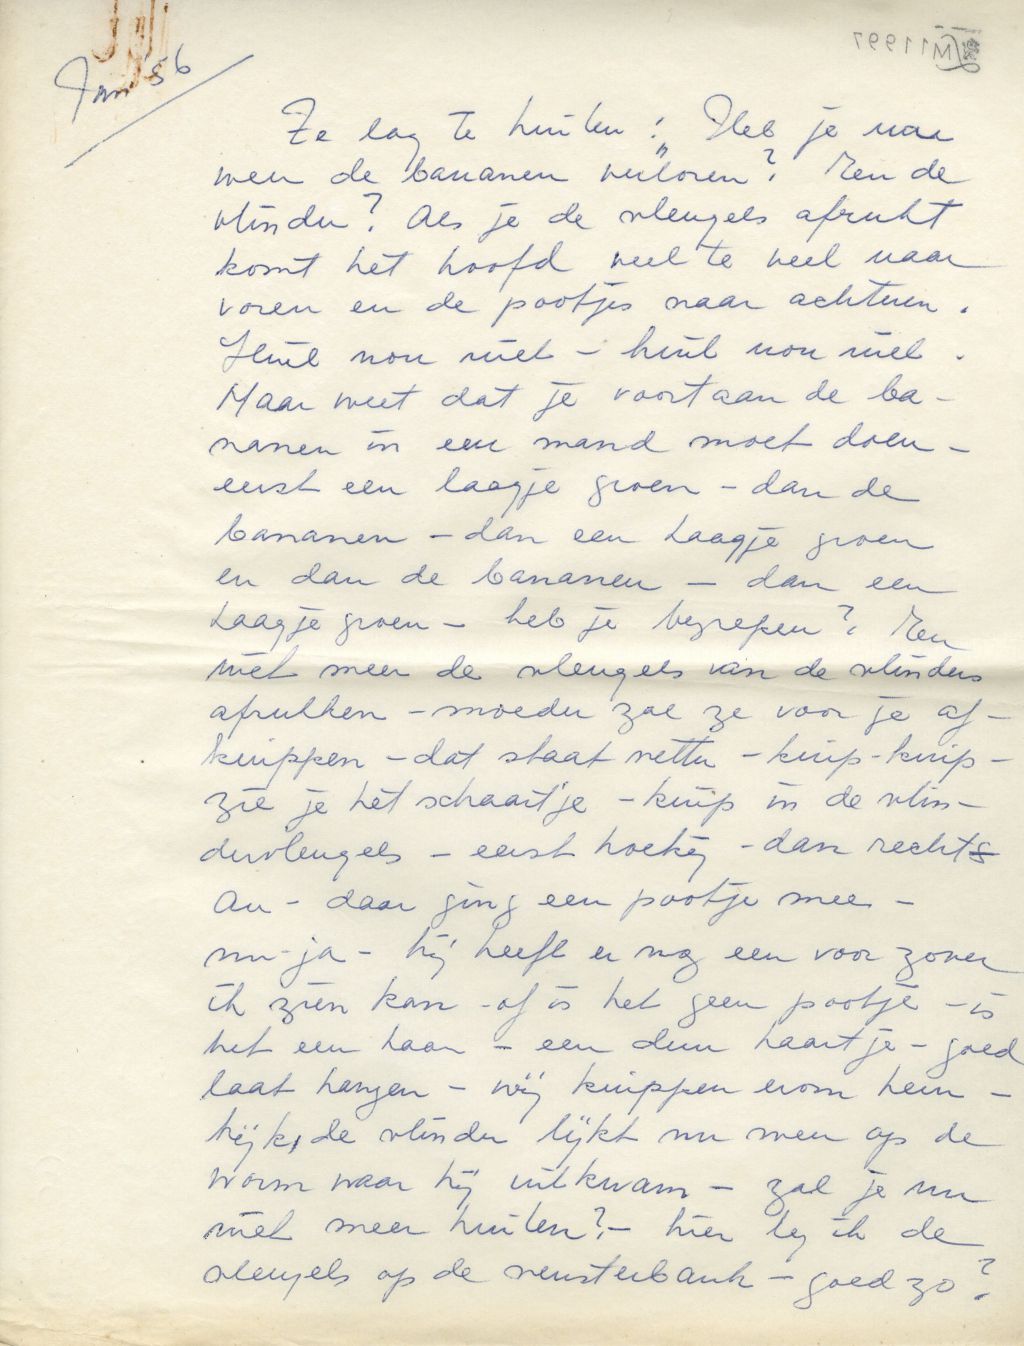 Jan '56
M11997
Ze lag te huilen: "Heb je nou
weer de bananen verloren? En de
vlinder? Als je de vleugels afrukt
komt het hoofd veel te veel naar
voren en de pootjes naar achteren.
Huil nou niet – huil nou niet.
Maar weet dat je voortaan de ba-
nanen in een mand moet doen –
eerst een laagje groen – dan de
bananen – dan een laagje groen
en dan de bananen – dan een
laagje groen – heb je begrepen? En
niet meer de vleugels van de vlinders
afrukken – moeder zal ze voor je af-
knippen – dat staat netter – knip-knip –
zie je het schaartje – knip in de vlin-
dervleugels – eerst hoekig – dan rechts
au – daar ging een pootje mee –
nu-ja – hij heeft er nog een voor zover
ik zien kan – of is het geen pootje – is
het een haar – een dun haartje – goed
laat hangen – wij knippen erom heen –
kijk, de vlinder lijkt nu weer op de
worm waar hij uitkwam – zal je nu
niet meer huilen? – hier leg ik de
vleugels op de vensterbank – goed zo?